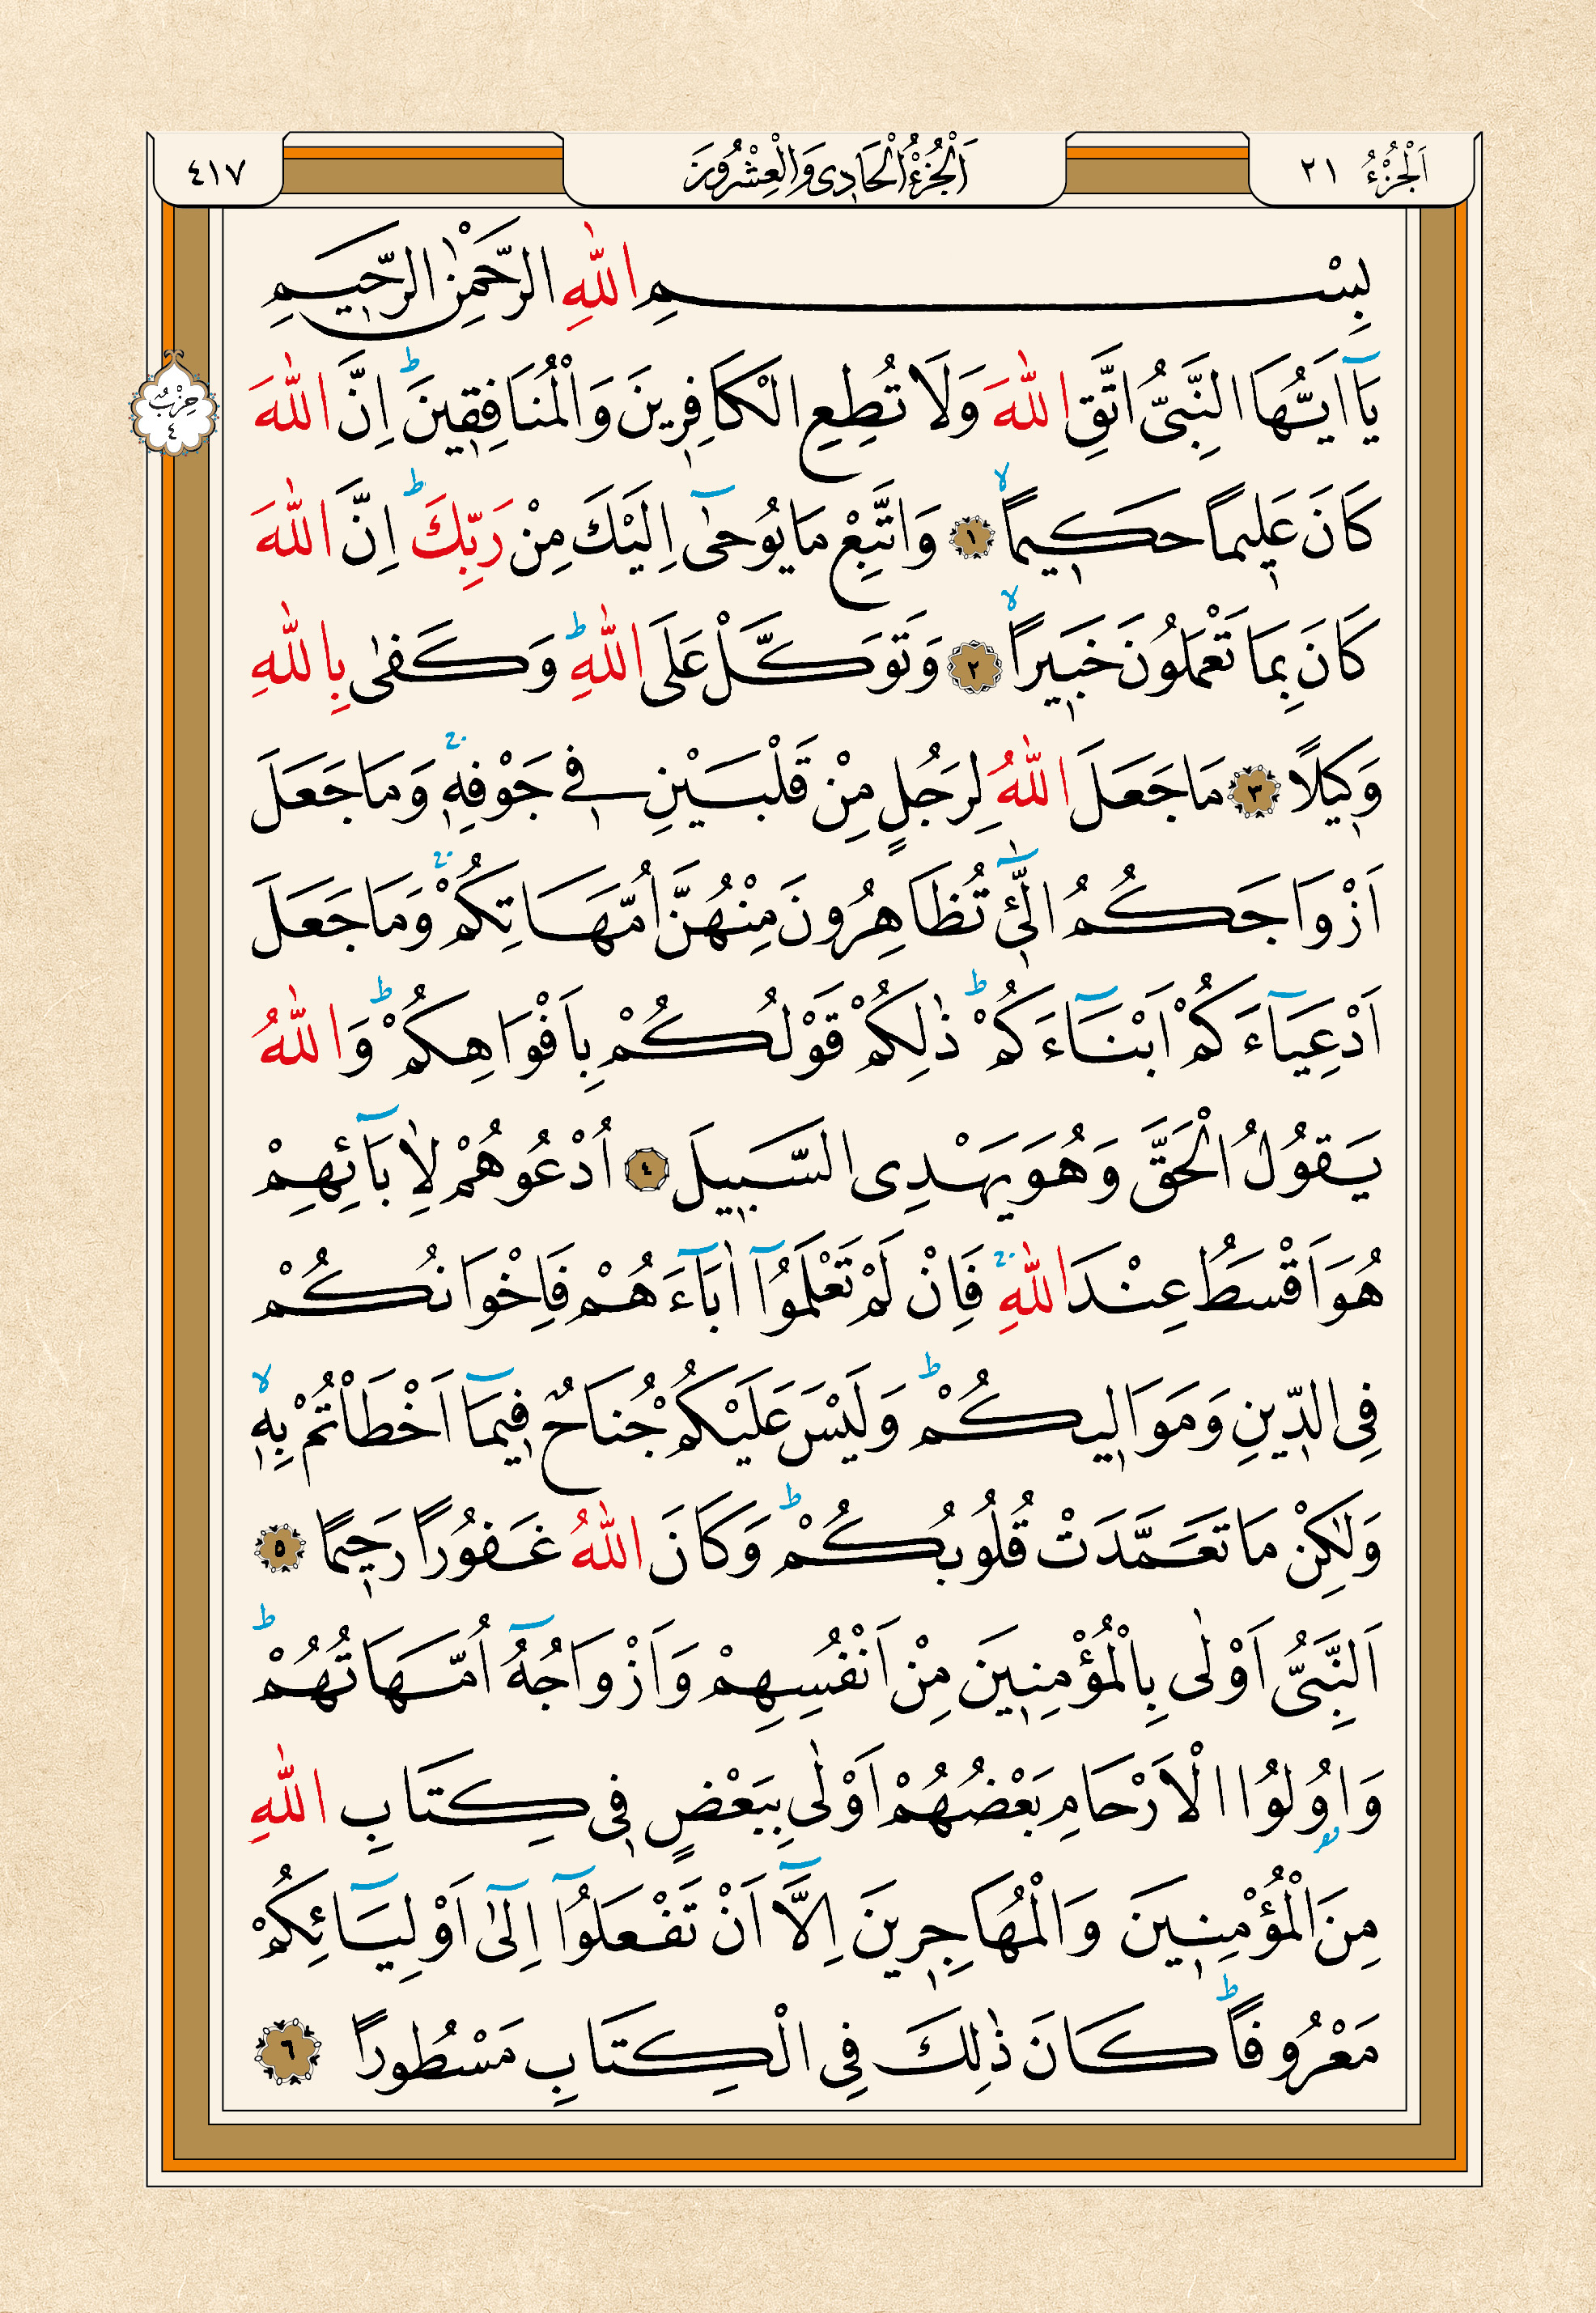 اَلْجُزْءُ ٢١
اَلْجُزْءُ الْحَادِى وَالْعِشْرُونَ
٤١٧
بِسْمِ اللّٰهِ الرَّحْمٰنِ الرَّحٖيمِ
يَٓا اَيُّهَا النَّبِىُّ اتَّقِ اللّٰهَ وَلَا تُطِعِ الْكَافِرٖينَ وَالْمُنَافِقٖينَؕ اِنَّ اللّٰهَ
حِزْبٌ ٤
كَانَ عَلٖيمًا حَكٖيمًاۙ ١ وَاتَّبِعْ مَا يُوحٰٓى اِلَيْكَ مِنْ رَبِّكَؕ اِنَّ اللّٰهَ
كَانَ بِمَا تَعْمَلُونَ خَبٖيرًاۙ ٢ وَتَوَكَّلْ عَلَى اللّٰهِؕ وَكَفٰى بِاللّٰهِ
وَكٖيلًا ٣ مَا جَعَلَ اللّٰهُ لِرَجُلٍ مِنْ قَلْبَيْنِ فٖى جَوْفِهٖۚ وَمَا جَعَلَ
اَزْوَاجَكُمُ الّٰٓـٖٔى تُظَاهِرُونَ مِنْهُنَّ اُمَّهَاتِكُمْۚ وَمَا جَعَلَ
اَدْعِيَٓاءَكُمْ اَبْنَٓاءَكُمْؕ ذٰلِكُمْ قَوْلُكُمْ بِاَفْوَاهِكُمْؕ وَاللّٰهُ
يَقُولُ الْحَقَّ وَهُوَ يَهْدِى السَّبٖيلَ ٤ اُدْعُوهُمْ لِاٰبَٓائِهِمْ
هُوَ اَقْسَطُ عِنْدَ اللّٰهِۚ فَاِنْ لَمْ تَعْلَمُٓوا اٰبَٓاءَهُمْ فَاِخْوَانُكُمْ
فِى الدّٖينِ وَمَوَالٖيكُمْؕ وَلَيْسَ عَلَيْكُمْ جُنَاحٌ فٖيمَٓا اَخْطَاْتُمْ بِهٖۙ
وَلٰكِنْ مَا تَعَمَّدَتْ قُلُوبُكُمْؕ وَكَانَ اللّٰهُ غَفُورًا رَحٖيمًا ٥
اَلنَّبِىُّ اَوْلٰى بِالْمُؤْمِنٖينَ مِنْ اَنْفُسِهِمْ وَاَزْوَاجُهُٓ اُمَّهَاتُهُمْؕ
وَاُو۬لُوا الْاَرْحَامِ بَعْضُهُمْ اَوْلٰى بِبَعْضٍ فٖى كِتَابِ اللّٰهِ
مِنَ الْمُؤْمِنٖينَ وَالْمُهَاجِرٖينَ اِلَّٓا اَنْ تَفْعَلُٓوا اِلٰٓى اَوْلِيَٓائِكُمْ
مَعْرُوفًاؕ كَانَ ذٰلِكَ فِى الْكِتَابِ مَسْطُورًا ٦